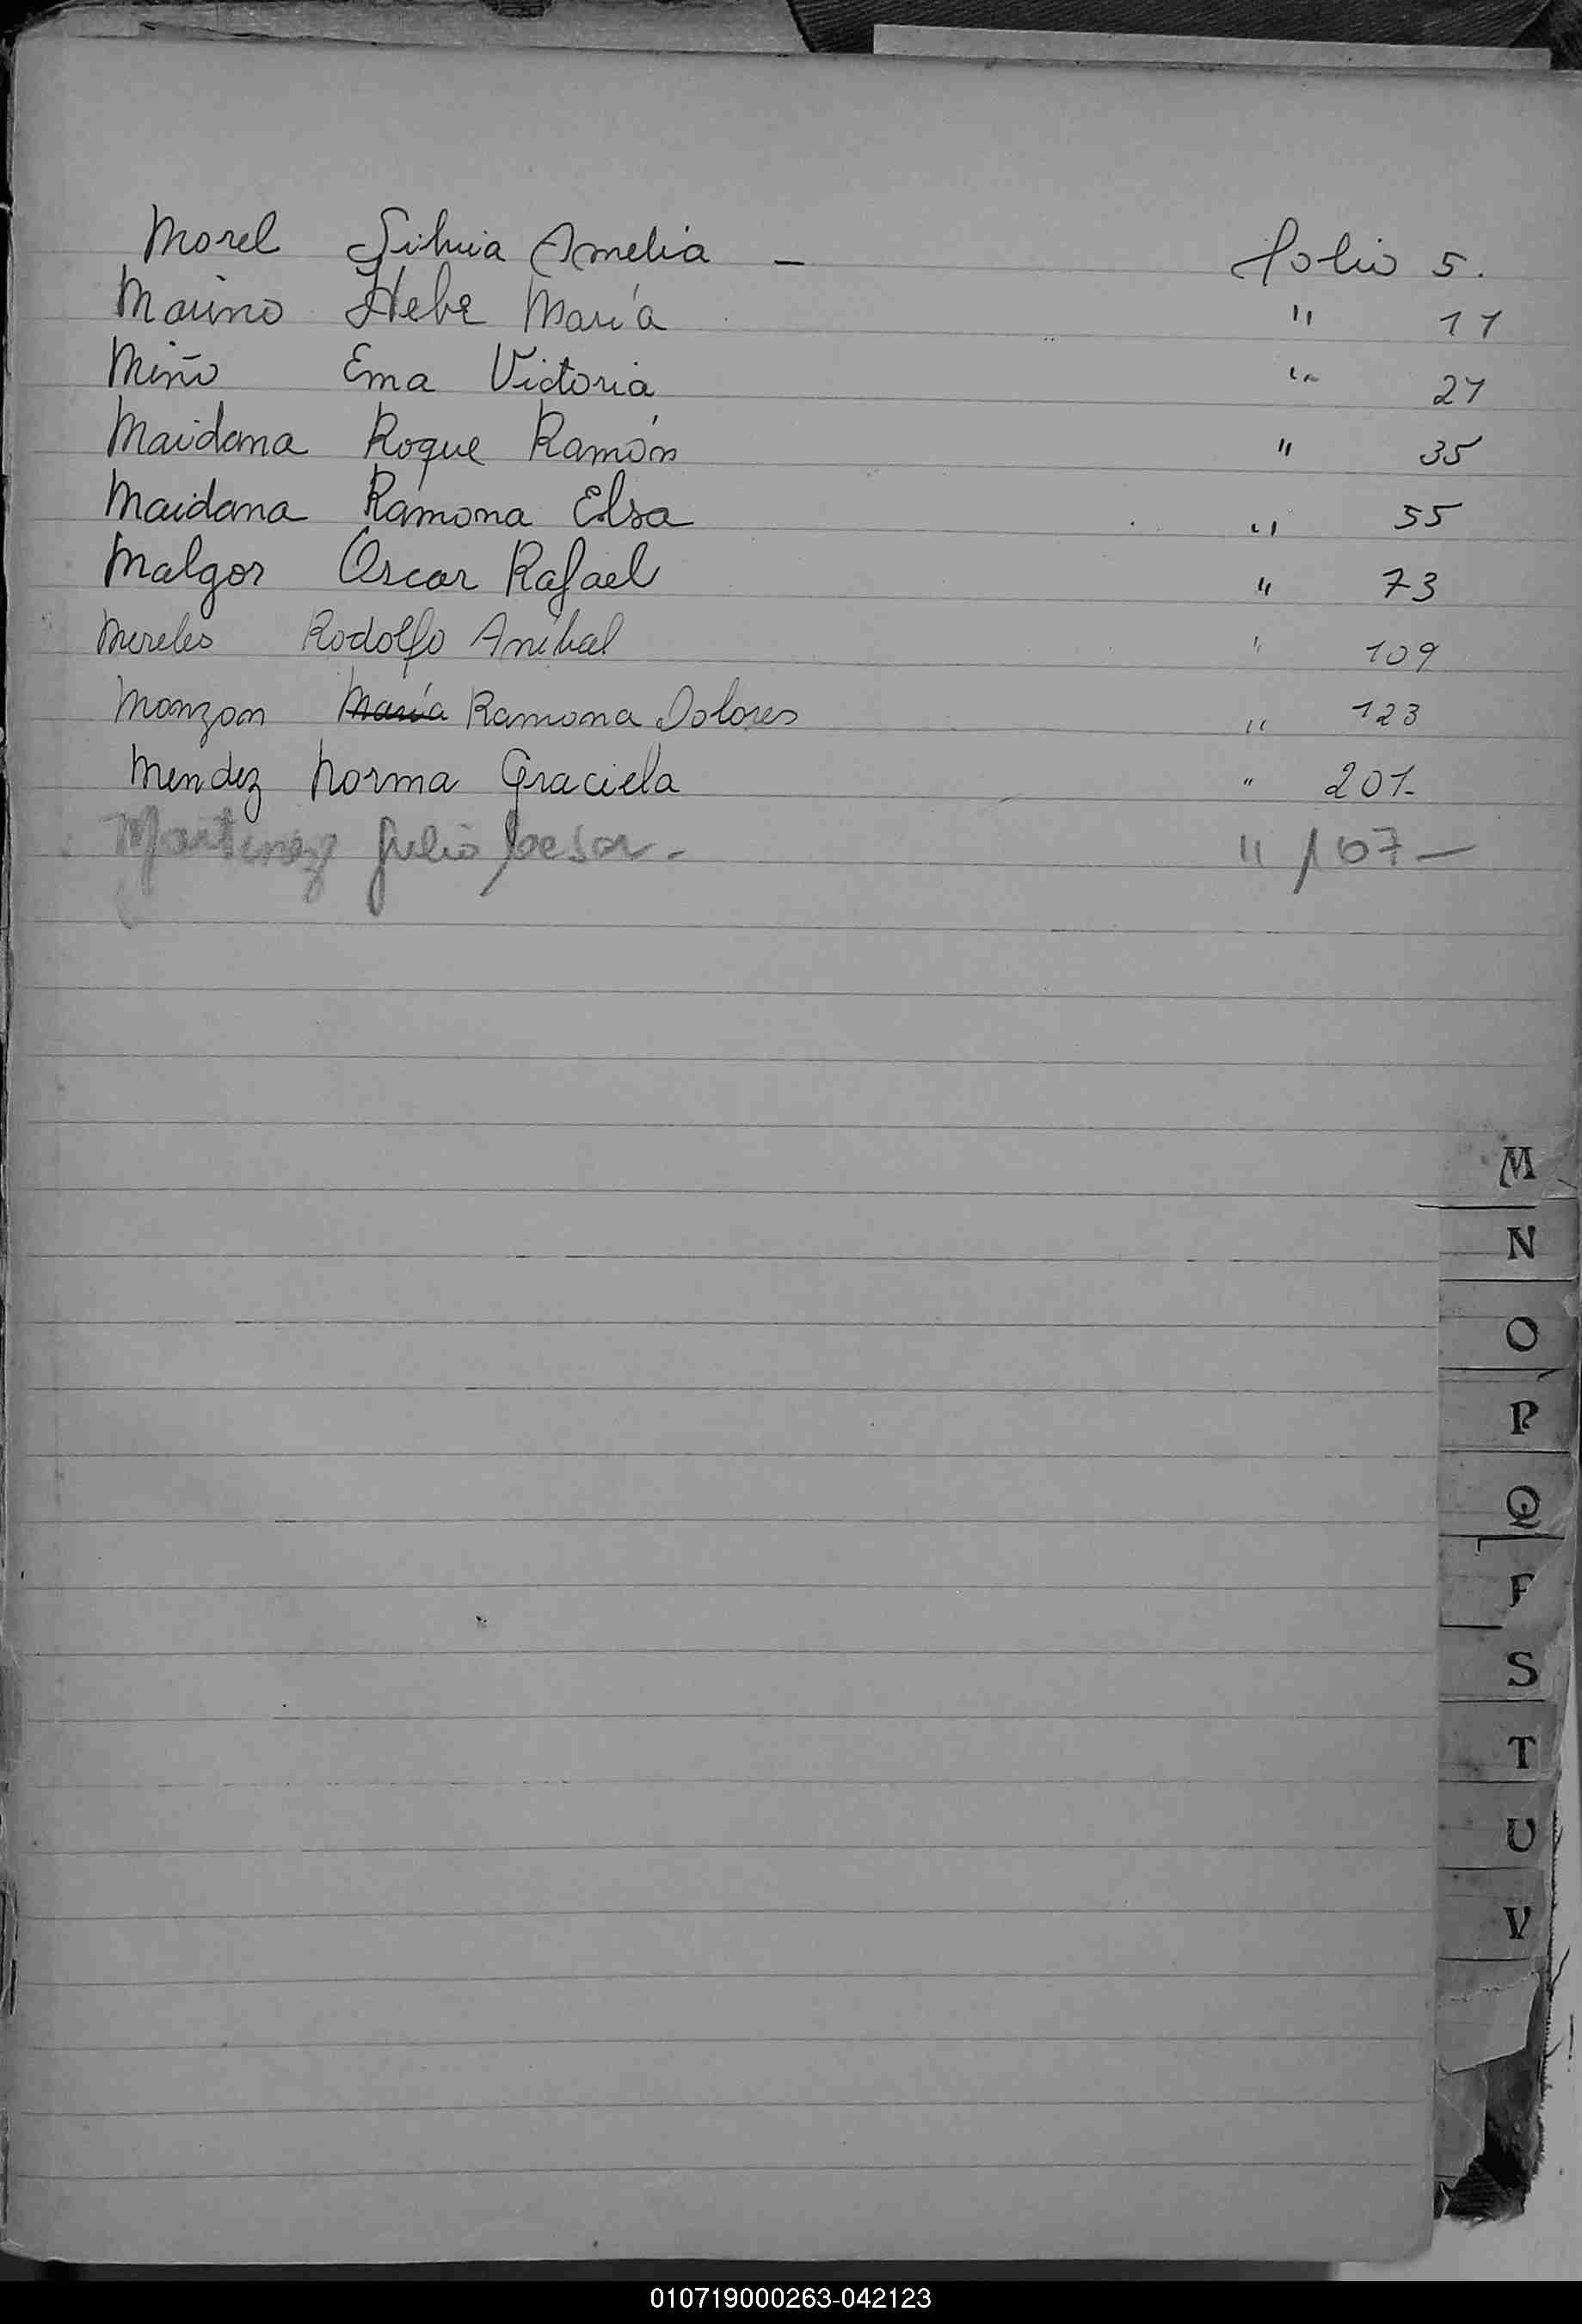 Morel Silvia Amelia – folio 5.
Marino Hebe María " 11
Miño Ema Victoria " 21
Maidana Roque Ramón " 35
Maidana Ramona Elsa " 55
Malgor Oscar Rafael " 73
Mereles Rodolfo Aníbal " 109
Monzon María Ramona Dolores " 123
Mendez Norma Graciela " 201-
Martinez Julio Cesar - " 107 —
M
N
O
P
Q
S
T
U
V
010719000263-042123